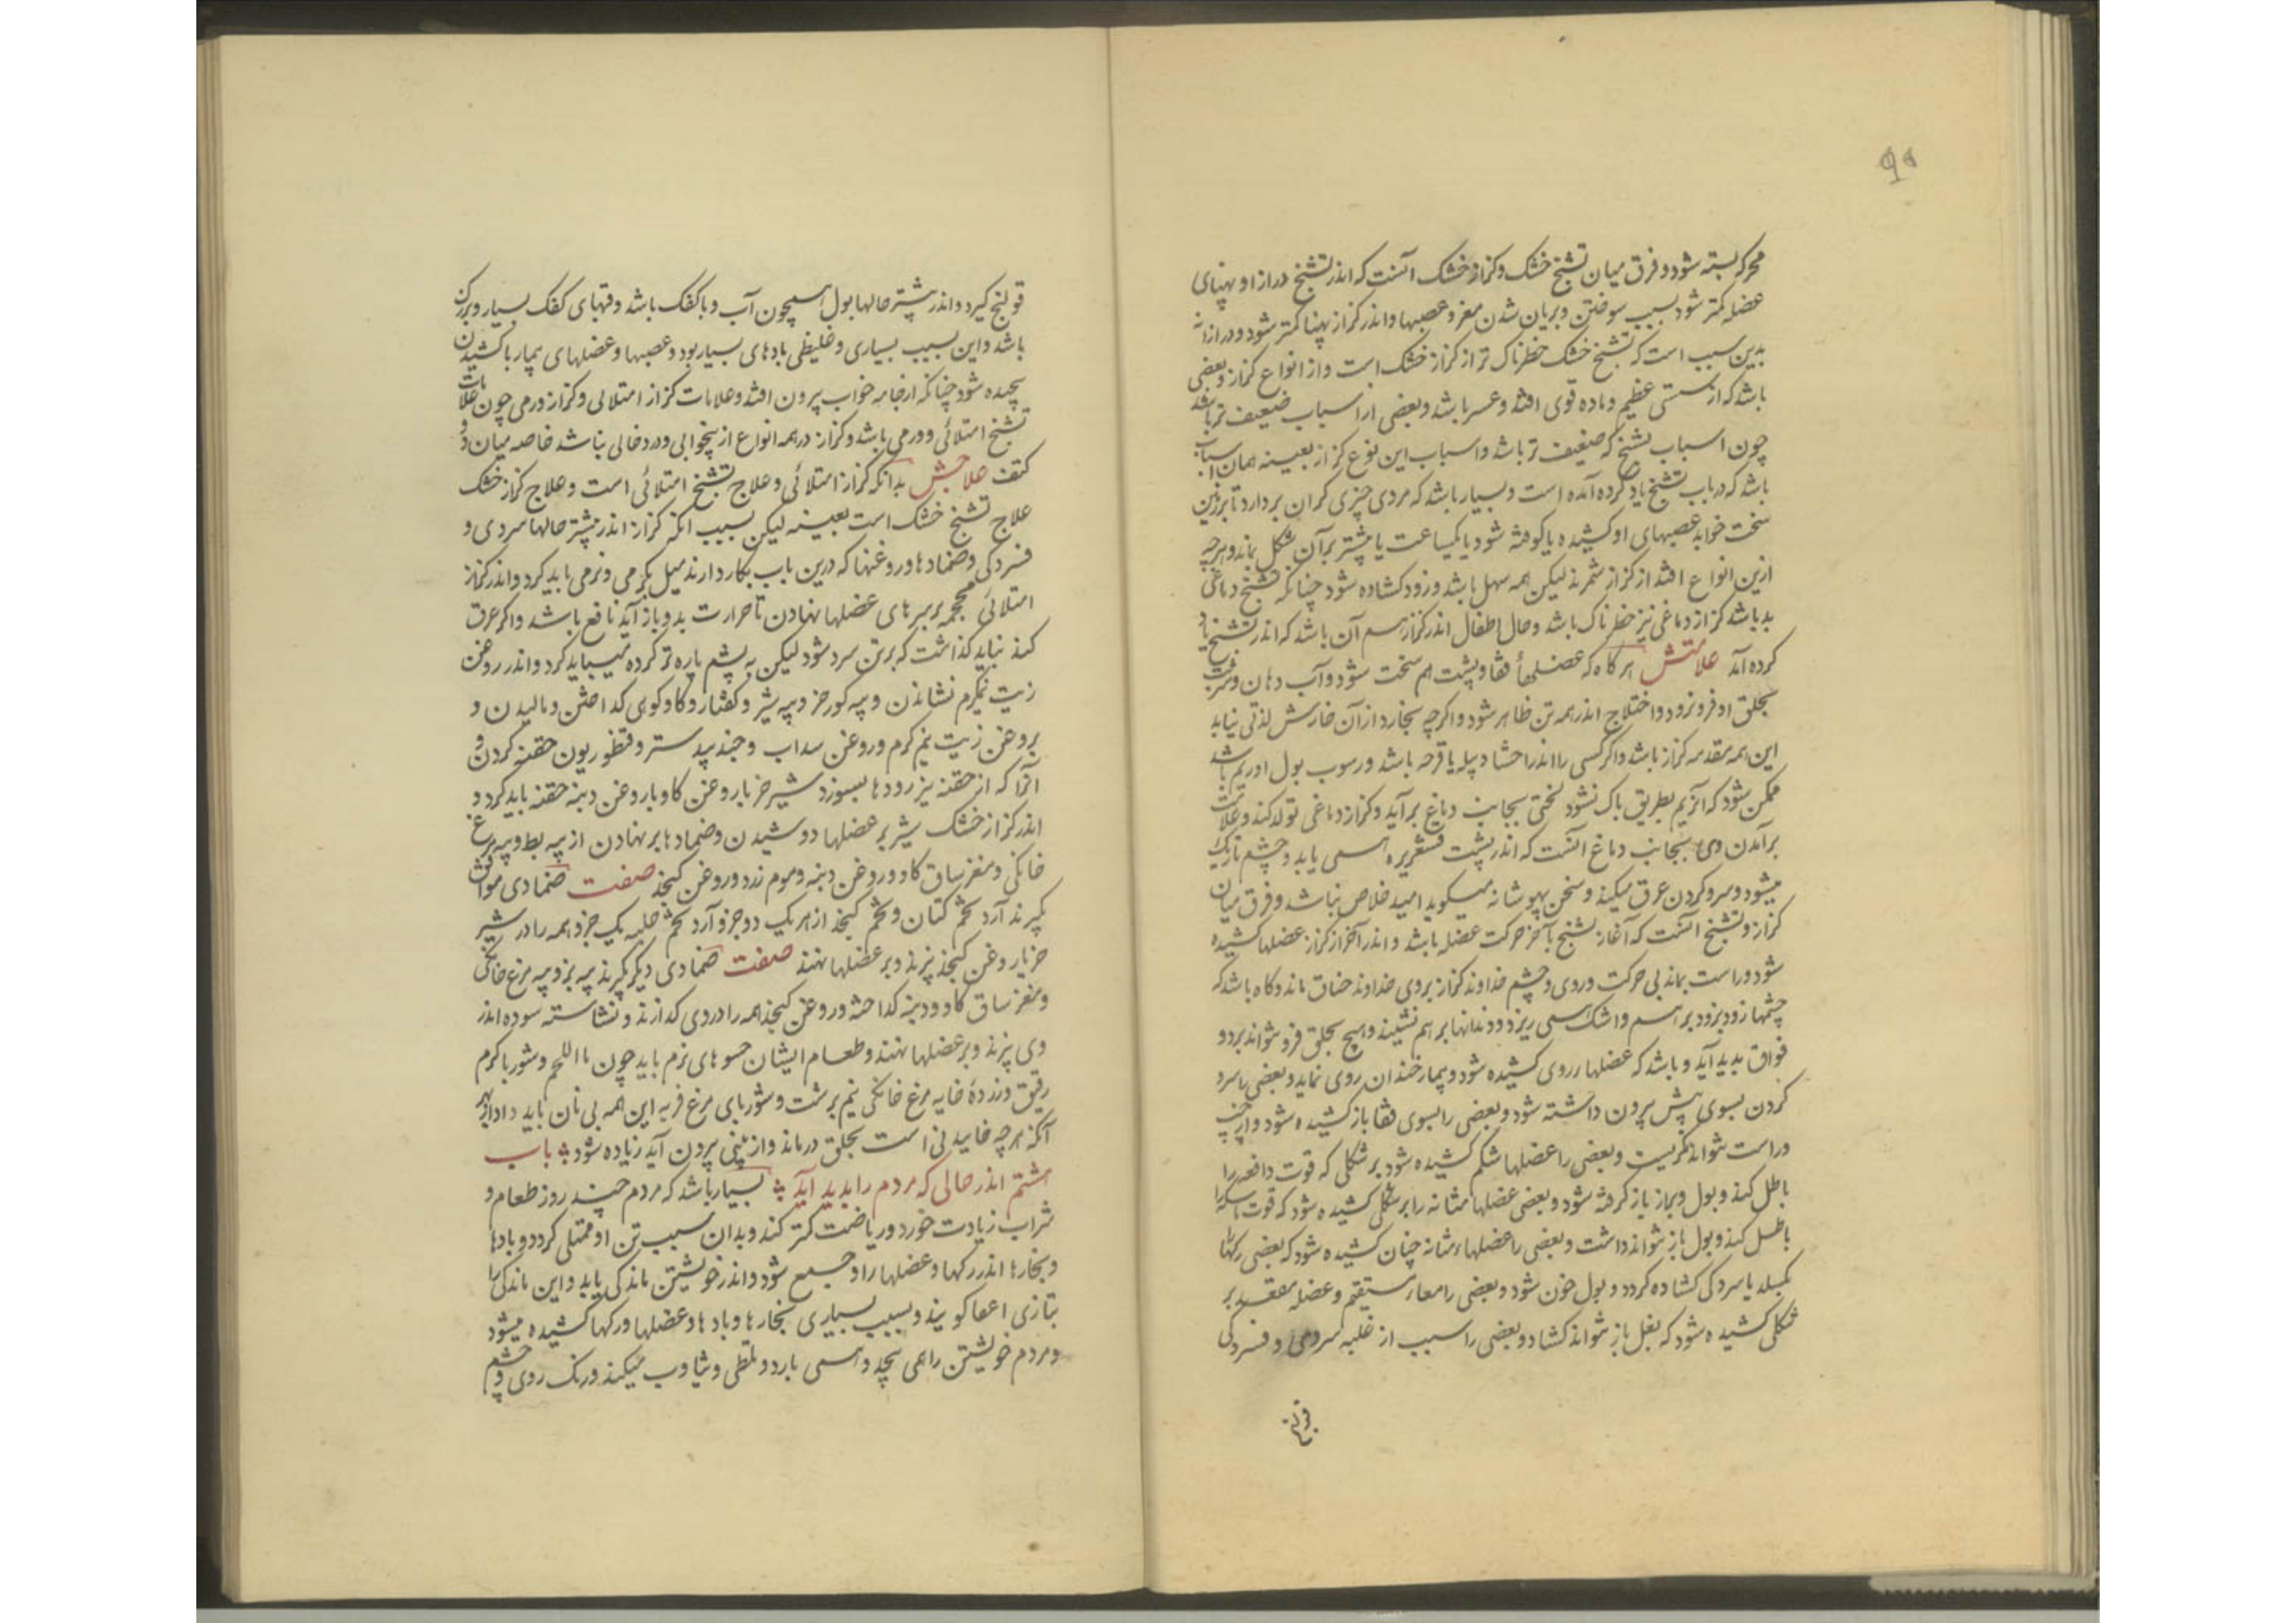 ۹۵
محرکه بسته شود و فرق میان تشنج خشک و کزاز خشک آنست که اندر تشنج درازا و پهنای
عضله کمتر شود بسبب سوختن و بریان شدن مغز و عصبها و اندر کزاز پهنا کمتر شود و درازا نه
بدین سبب است که تشنج خشک خطرناک تر از کزاز خشک است و از انواع کزاز و بعضی
باشد که از سستی عظیم و ماده قوی افتد و عسر باشد و بعضی از اسباب ضعیف تر باشد
چون اسباب تشنج که ضعیف تر باشد و اسباب این نوع کزاز بعینه همان اسباب
باشد که در باب تشنج یاد کرده آمده است و بسیار باشد که مردی چیزی گران بردارد تا بر زمین
سخت خوابد عصبهای او کشیده یا کوفته شود یا یکساعت یا بیشتر بر آن شکل بماند و هرچه
ازین انواع افتد از کزاز شمرند لیکن همه سهل باشد و زود کشاده شود چنانکه تشنج دماغی
بد باشد کزاز دماغی نیز خطرناک باشد و حال اطفال اندر کزاز هم آن باشد که اندر تشنج یاد
کرده آمد علامتش هر گاه که عضلهاء قفا و پشت هم سخت شود و آب دهان و شربت
بحلق او فرو نرود و اختلاج اندر همه تن ظاهر شود و اگرچه بخارد از آن خارش لذتی نیابد
این همه مقدمه کزاز باشد و اگر کسی را اندر احشا دبیله یا قرحه باشد و رسوب بول او ریم باشد
ممکن شود که آن ریم بطریق پاک نشود لختی بجانب دماغ برآید و کزاز دماغی تولد کند و علامت
برآمدن وی بجانب دماغ آنست که اندر پشت قشعریره همی یابد و چشم تاریک
میشود و سر و گردن عرق میکند و سخن بیهوشانه میگوید امید خلاص نباشد و فرق میان
کزاز و تشنج آنست که آغاز تشنج با آخر حرکت عضله باشد و اندر آخر از کزاز عضلها کشیده
شود و راست بماند بی حرکت و روی و چشم خداوند کزاز بروی خداوند خناق ماند و گاه باشد که
چشمها زود بزود بر هم و اشک همی ریزد و دندانها بر هم نشیند و هیچ بحلق فرو نتواند برد و
فواق پدید آید و باشد که عضلهاء روی کشیده شود و بیمار خندان روی نماید و بعضی را سر و
گردن بسوی پیش بیرون داشته شود و بعضی را بسوی قفا باز کشیده شود و از چپ
و راست نتواند نگریست و بعضی را عضلها شکم کشیده شود بر شکلی که قوت دافعه را
باطل کند و بول و براز باز گرفته شود و بعضی عضلها مثانه را بر شکلی کشیده شود که قوت ماسکه را
باطل کند و بول باز نتواند داشت و بعضی را عضلهاء مثانه چنان کشیده شود که بعضی رگها
بکسلد یا سر رگی کشاده گردد و بول خون شود و بعضی را معاء مستقیم و عضله مقعد بر
شکلی کشیده شود که ثفل باز نتواند کشاد و بعضی را سبب از غلبه سردی و فسردگی
قولنج
قولنج گیرد و اندر بیشتر حالها بول همچون آب و با کفک باشد و قتهای کفک بسیار و بزرگ
باشد و این بسبب بسیاری و غلیظی بادهای بسیار بود و عصبها و عضلهای بیمار با کشیدن
پیچیده شود چنانکه از جامه خواب بیرون افتد و علامات کزاز امتلائی و کزاز ورمی چون علامات
تشنج امتلائی و ورمی باشد و کزاز در همه انواع از بیخوابی و درد خالی نباشد خاصه میان دو
کتف علاجش بدانکه کزاز امتلائی و علاج تشنج امتلائی است و علاج کزاز خشک
علاج تشنج خشک است بعینه لیکن بسبب آنکه کزاز اندر بیشتر حالها سردی و
فسردگی و ضمادها و روغنها که درین باب بکار دارند میل بگرمی و نرمی باید کرد و اندر کزاز
امتلائی محجمه بر سرهای عضلها نهادن تا حرارت بدو باز آید نافع باشد و اگر عرق
کند نباید گذاشت که بر تن سرد شود لیکن به پشم پاره تر کرده میباید کرد و اندر روغن
زیت نیم گرم نشاندن و پیه گورخر و پیه شیر و کفتار و گاو کوهی گداختن و مالیدن و
بروغن زیت نیم گرم و روغن سداب و جندبیدستر و قنطوریون حقنه کردن و
آنرا که از حقنه تیز رودها بسوزد شیر خر با روغن گاو با روغن دنبه حقنه باید کرد و
اندر کزاز خشک شیر بر عضلها دوشیدن و ضمادها بر نهادن از پیه بط و پیه مرغ
خانگی و مغز ساق گاو و روغن دنبه و موم زرد و روغن کنجد صفت ضمادی موافق
بگیرند آرد تخم کتان و تخم کنجد از هر یک دو جزو آرد تخم حلبه یک جزو همه را در شیر
خر با روغن کنجد بپزند و بر عضلها نهند صفت ضمادی دیگر بگیرند پیه بز و پیه مرغ خانگی
و مغز ساق گاو و دنبه گداخته و روغن کنجد همه را در وی گدازند و نشاسته سوده اندر
وی بپزند و بر عضلها نهند و طعام ایشان حسوهای نرم باید چون ماء اللحم و شوربا گرم
رقیق و زردهٔ خایه مرغ خانگی نیم برشت و شوربای مرغ فربه این همه بی نان باید داد از بهر
آنکه هرچه خاییدنی است بحلق در ماند و از بینی بیرون آید زیاده شود باب
هشتم اندر حالی که مردم را پدید آید بسیار باشد که مردم چند روز طعام و
شراب زیادت خورد و ریاضت کمتر کند و بدان سبب تن او ممتلی گردد و بادها
و بخارها اندر رگها و عضلهاء او جمع شود و اندر خویشتن ماندگی یابد و این ماندگی را
بتازی اعیا گویند و بسبب بسیاری بخارها و بادها و عضلها و رگها کشیده میشود
و مردم خویشتن را همی پیچد و همی یازد و تمطی و تثاوب میکند و رنگ روی و چشم